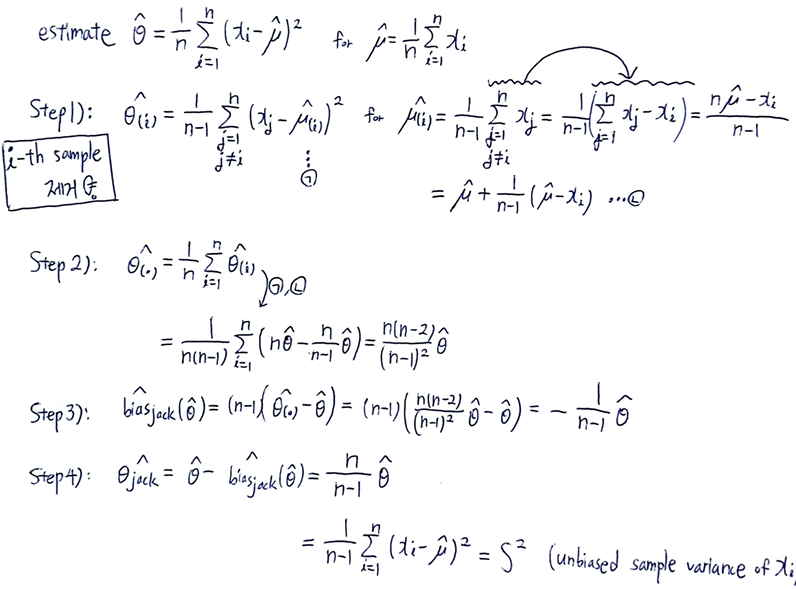 estimate θ̂ = 1/n Σ_{i=1}^{n} (xᵢ - μ̂)² for μ̂ = 1/n Σ_{i=1}^{n} xᵢ
Step1): θ̂₍ᵢ₎ = 1/(n-1) Σ_{j=1, j≠i}^{n} (xⱼ - μ̂₍ᵢ₎)² for μ̂₍ᵢ₎ = 1/(n-1) Σ_{j=1, j≠i}^{n} xⱼ = 1/(n-1) (Σ_{j=1}^{n} xⱼ - xᵢ) = (nμ̂ - xᵢ)/(n-1)
⋮ ㉠
i-th sample
제거 후
= μ̂ + 1/(n-1) (μ̂ - xᵢ) ... ㉡
Step2): θ̂₍.₎ = 1/n Σ_{i=1}^{n} θ̂₍ᵢ₎
㉠, ㉡
= 1/(n(n-1)) Σ_{i=1}^{n} (nθ̂ - n/(n-1) θ̂) = n(n-2)/(n-1)² θ̂
Step3): biaŝ_jack(θ̂) = (n-1)(θ̂₍.₎ - θ̂) = (n-1)(n(n-2)/(n-1)² θ̂ - θ̂) = - 1/(n-1) θ̂
Step4): θ̂_jack = θ̂ - biaŝ_jack(θ̂) = n/(n-1) θ̂
= 1/(n-1) Σ_{i=1}^{n} (xᵢ - μ̂)² = S² (unbiased sample variance of xᵢ)